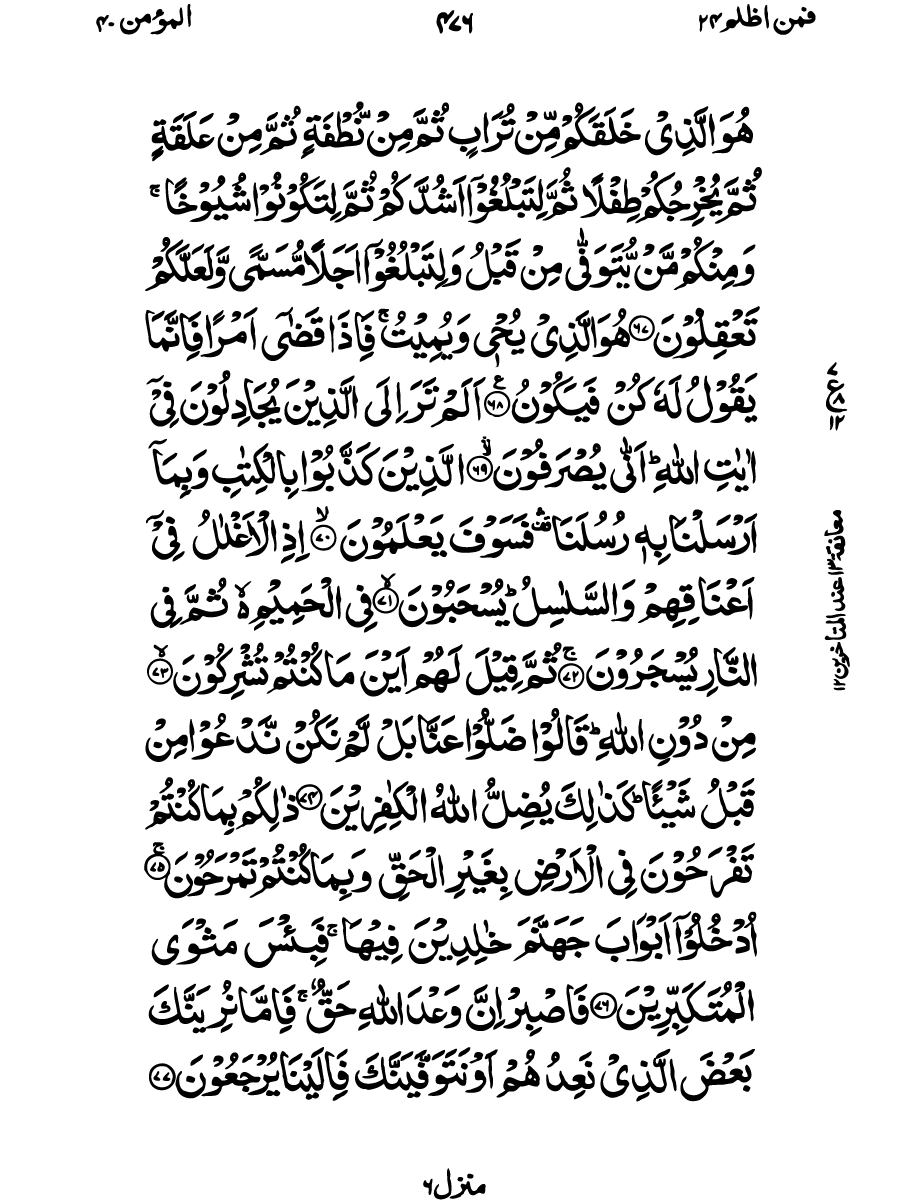 فمن اظلم ۲۴
۴۷۶
المؤمن ۴۰
هُوَ الَّذِىْ خَلَقَكُمْ مِّنْ تُرَابٍ ثُمَّ مِنْ نُّطْفَةٍ ثُمَّ مِنْ عَلَقَةٍ
ثُمَّ يُخْرِجُكُمْ طِفْلًا ثُمَّ لِتَبْلُغُوْۤا اَشُدَّكُمْ ثُمَّ لِتَكُوْنُوْا شُيُوْخًا ۚ
وَمِنْكُمْ مَّنْ يُّتَوَفّٰى مِنْ قَبْلُ وَلِتَبْلُغُوْۤا اَجَلًا مُّسَمًّى وَّلَعَلَّكُمْ
تَعْقِلُوْنَ ﴿۶۷﴾ هُوَ الَّذِىْ يُحْىٖ وَيُمِيْتُ ۚ فَاِذَا قَضٰۤى اَمْرًا فَاِنَّمَا
يَقُوْلُ لَهٗ كُنْ فَيَكُوْنُ ﴿۶۸﴾ ع اَلَمْ تَرَ اِلَى الَّذِيْنَ يُجَادِلُوْنَ فِىْۤ
اٰيٰتِ اللّٰهِ ؕ اَنّٰى يُصْرَفُوْنَ ﴿۶۹﴾ ۛۙ الَّذِيْنَ كَذَّبُوْا بِالْكِتٰبِ وَبِمَاۤ
اَرْسَلْنَا بِهٖ رُسُلَنَا ۛ۟ فَسَوْفَ يَعْلَمُوْنَ ﴿۷۰﴾ ۙ اِذِ الْاَغْلٰلُ فِىْۤ
اَعْنَاقِهِمْ وَالسَّلٰسِلُ ؕ يُسْحَبُوْنَ ﴿۷۱﴾ ۙ فِى الْحَمِيْمِ ۙ۬ ثُمَّ فِى
النَّارِ يُسْجَرُوْنَ ﴿۷۲﴾ ۚ ثُمَّ قِيْلَ لَهُمْ اَيْنَ مَا كُنْتُمْ تُشْرِكُوْنَ ﴿۷۳﴾ ۙ
مِنْ دُوْنِ اللّٰهِ ؕ قَالُوْا ضَلُّوْا عَنَّا بَلْ لَّمْ نَكُنْ نَّدْعُوْا مِنْ
قَبْلُ شَيْـًٔا ؕ كَذٰلِكَ يُضِلُّ اللّٰهُ الْكٰفِرِيْنَ ﴿۷۴﴾ ذٰلِكُمْ بِمَا كُنْتُمْ
تَفْرَحُوْنَ فِى الْاَرْضِ بِغَيْرِ الْحَقِّ وَبِمَا كُنْتُمْ تَمْرَحُوْنَ ﴿۷۵﴾ ۚ
اُدْخُلُوْۤا اَبْوَابَ جَهَنَّمَ خٰلِدِيْنَ فِيْهَا ۚ فَبِئْسَ مَثْوَى
الْمُتَكَبِّرِيْنَ ﴿۷۶﴾ فَاصْبِرْ اِنَّ وَعْدَ اللّٰهِ حَقٌّ ۚ فَاِمَّا نُرِيَنَّكَ
بَعْضَ الَّذِىْ نَعِدُهُمْ اَوْ نَتَوَفَّيَنَّكَ فَاِلَيْنَا يُرْجَعُوْنَ ﴿۷۷﴾
۷
ع ۸
۱۲
معانقة ۱۳ عند المتاخرین ۱۲
منزل ۶